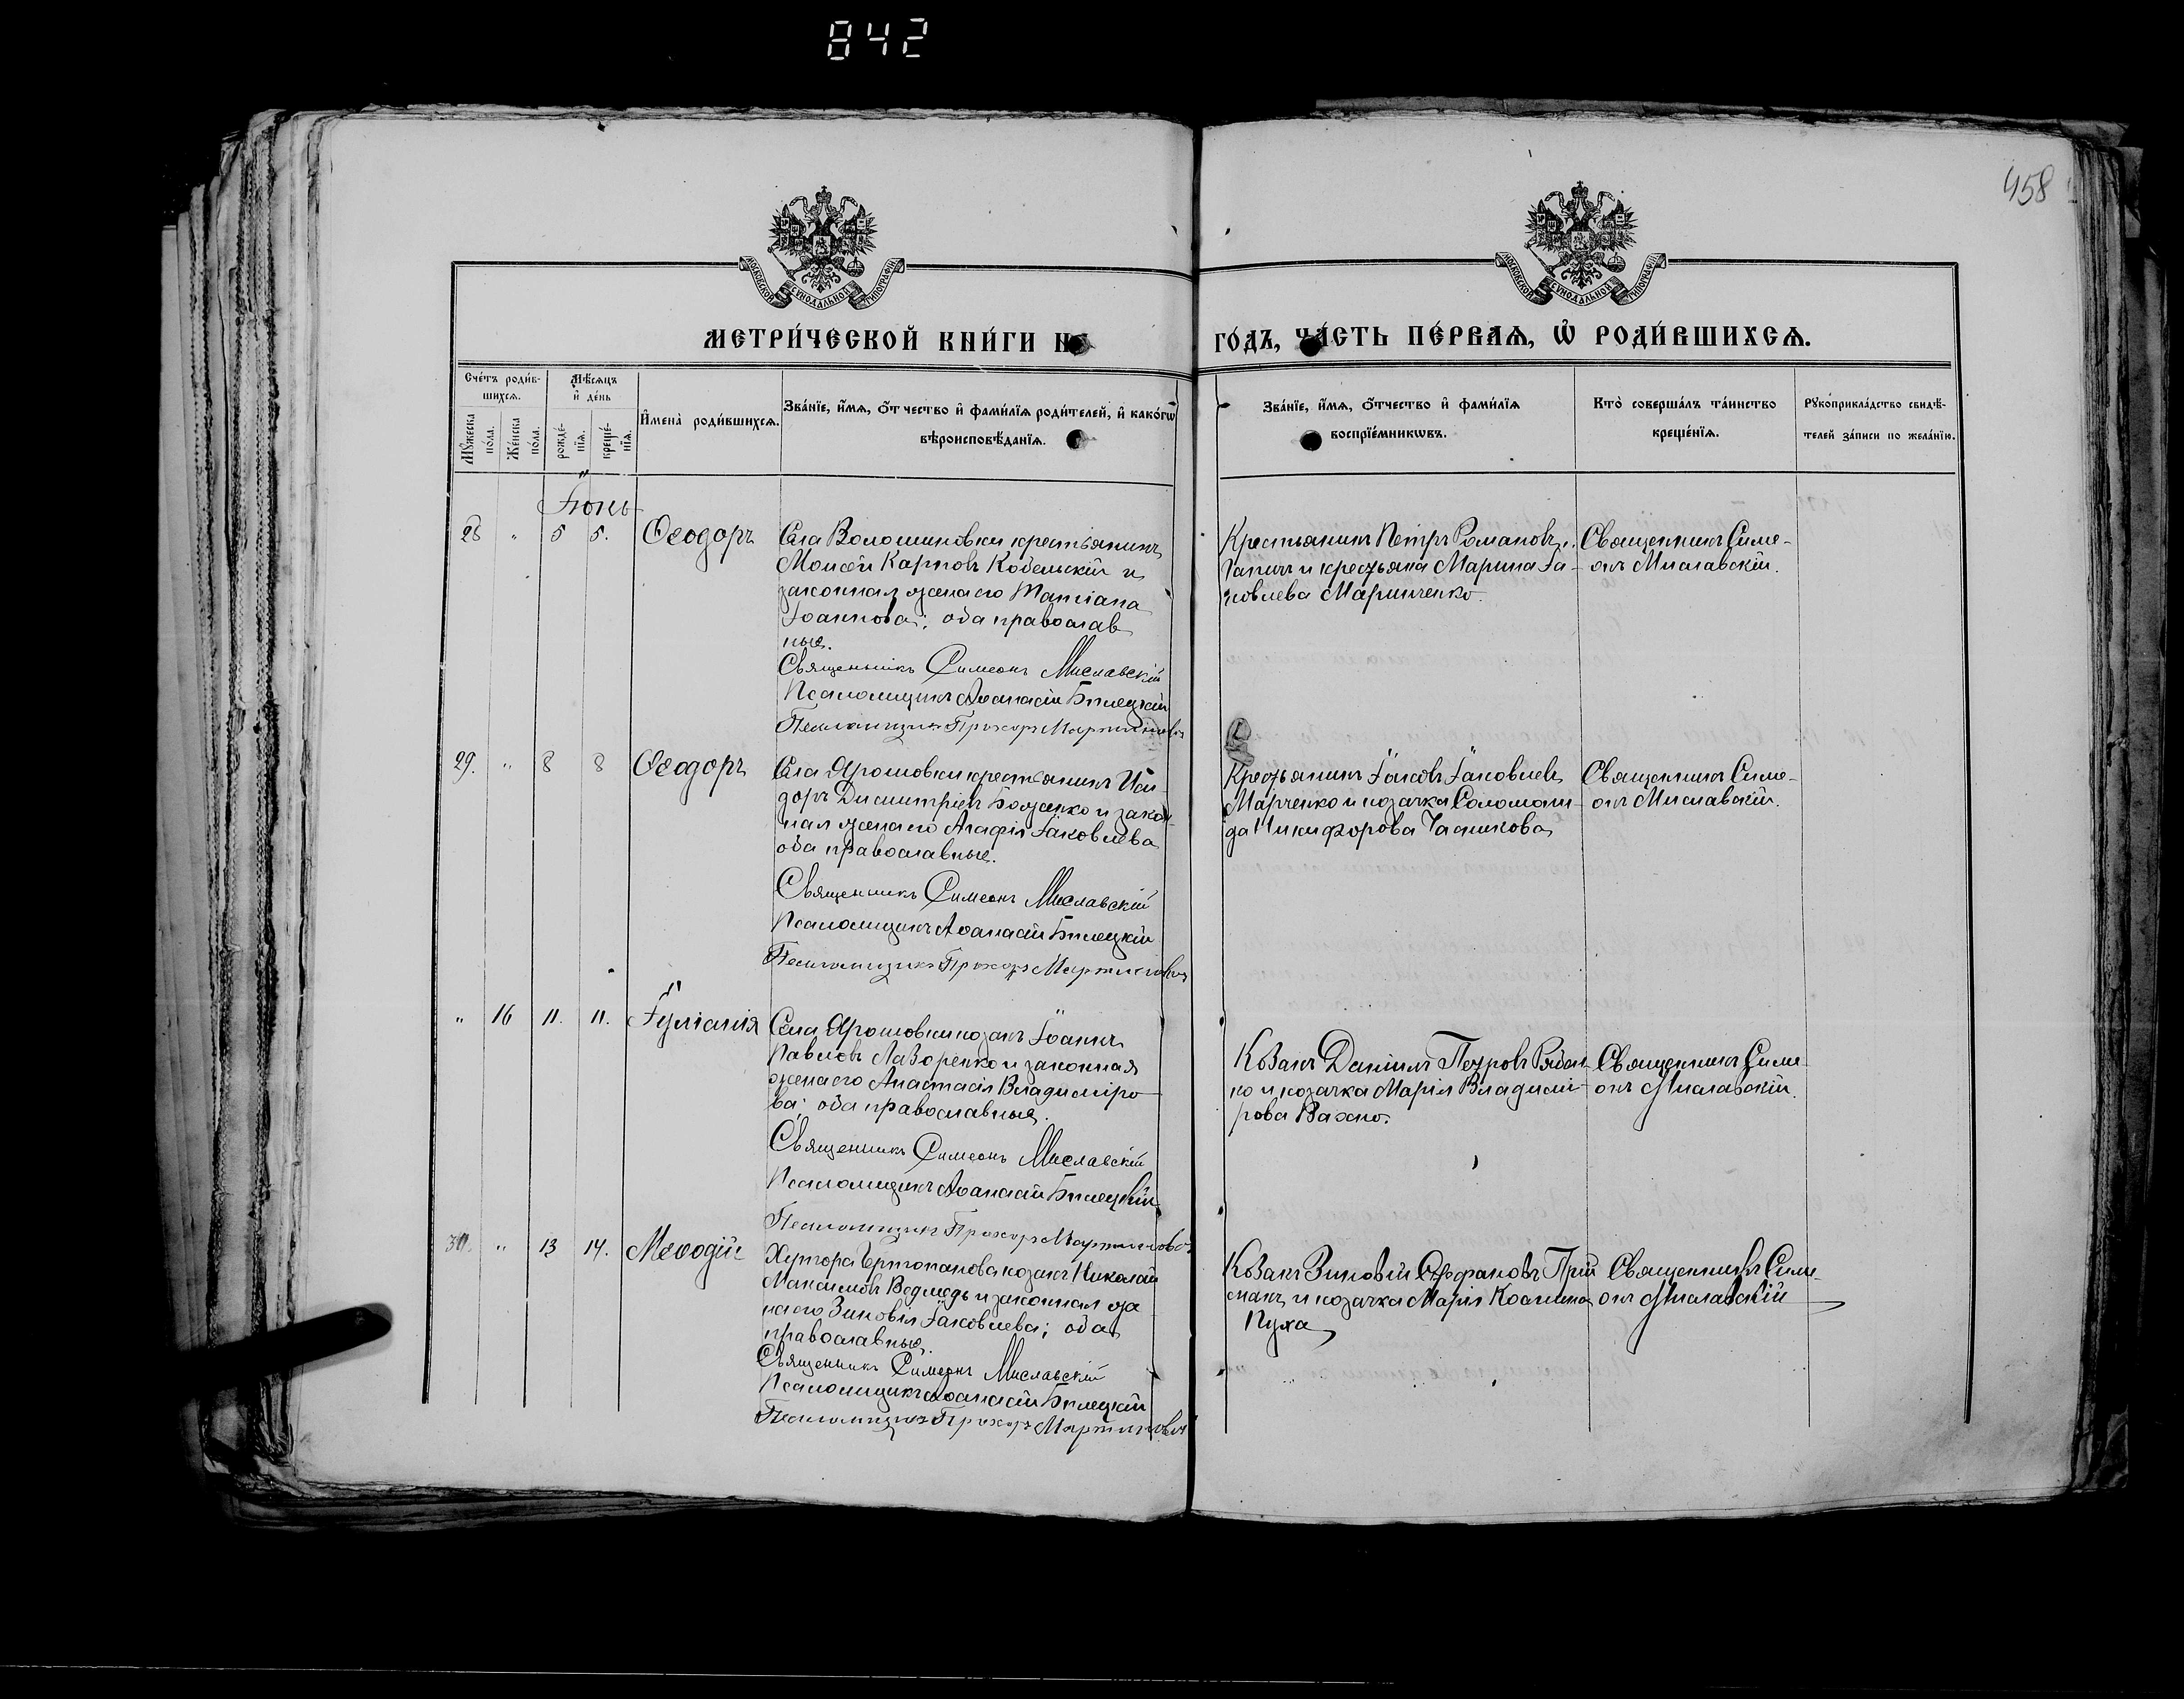 842
458
МОСКОВСКОЙ СѴНОДАЛЬНОЙ ТИПОГРАФІИ
МОСКОВСКОЙ СѴНОДАЛЬНОЙ ТИПОГРАФІИ
МЕТРИ́ЧЕСКОЙ КНИ́ГИ НА
ГО́ДЪ, ЧА́СТЬ ПЕ́РВАѦ, Ѡ҆ РОДИ́ВШИХСѦ.
Сче́тъ роди́в-
шихсѧ.
Мѣ́сѧцъ
и҆ де́нь
Мꙋ́жеска
по́ла.
Же́нска
по́ла.
рожде́-
нїѧ.
креще́-
нїѧ.
И҆мена̀ роди́вшихсѧ.
Зва́нїе, и҆́мѧ, ѻ҆́тчество и҆ фами́лїѧ роди́телей, и҆ како́гѡ
вѣроисповѣ́данїѧ.
Зва́нїе, и҆́мѧ, ѻ҆́тчество и҆ фами́лїѧ
воспрїе́мникѡвъ.
Кто̀ соверша́лъ та́инство
креще́нїѧ.
Рꙋкоприкла́дство свидѣ́-
телей за́писи по жела́нїю.
Іюнь
28 " 5 5. Ѳеодоръ
Села Волошиновки крестьянинъ
Моисей Карповъ Кобельскій и
законная жена его Татіана
Іоаннова; оба православ
ные.
Священникъ Симеонъ Миславскій
Псаломщикъ Аѳанасій Билецкій
Псаломщикъ Прохоръ Мартиновъ
Крестьянинъ Петръ Романовъ
и крестьянка Марина Іа-
ковлева Маринченко.
Священникъ Симе-
онъ Миславскій.
29. " 8 8 Ѳеодоръ
Села Ярошовки крестьянинъ Иси-
доръ Димитріевъ Боженко и закон-
ная жена его Агафія Іаковлева
оба православные.
Священникъ Симеонъ Миславскій
Псаломщикъ Аѳанасій Билецкій
Псаломщикъ Прохоръ Мартиновъ
Крестьянинъ Іаковъ Іаковлевъ
Марченко и козачка Соломани-
да Никифорова Чашникова
Священникъ Симе-
онъ Миславскій.
" 16 11. 11. Іуліанія
Села Ярошовки козакъ Іоаннъ
Павловъ Лазоренко и законная
жена его Анастасія Владиміро-
ва; оба православные.
Священникъ Симеонъ Миславскій
Псаломщикъ Аѳанасій Билецкій
Псаломщикъ Прохоръ Мартиновъ
Козакъ Даніилъ Петровъ Рябен-
ко и козачка Марія Владимі-
рова Вахно.
Священникъ Симе-
онъ Миславскій.
30. " 13 14. Меѳодій
Хутора козакъ Николай
Максимовъ Ведмедь и законная же
на его Зиновія Іаковлева; оба
православные.
Священникъ Симеонъ Миславскій
Псаломщикъ Аѳанасій Билецкій
Псаломщикъ Прохоръ Мартиновъ
Козакъ Зиновій Стефановъ При
и козачка Марія
Пуха
Священникъ Симе-
онъ Миславскій